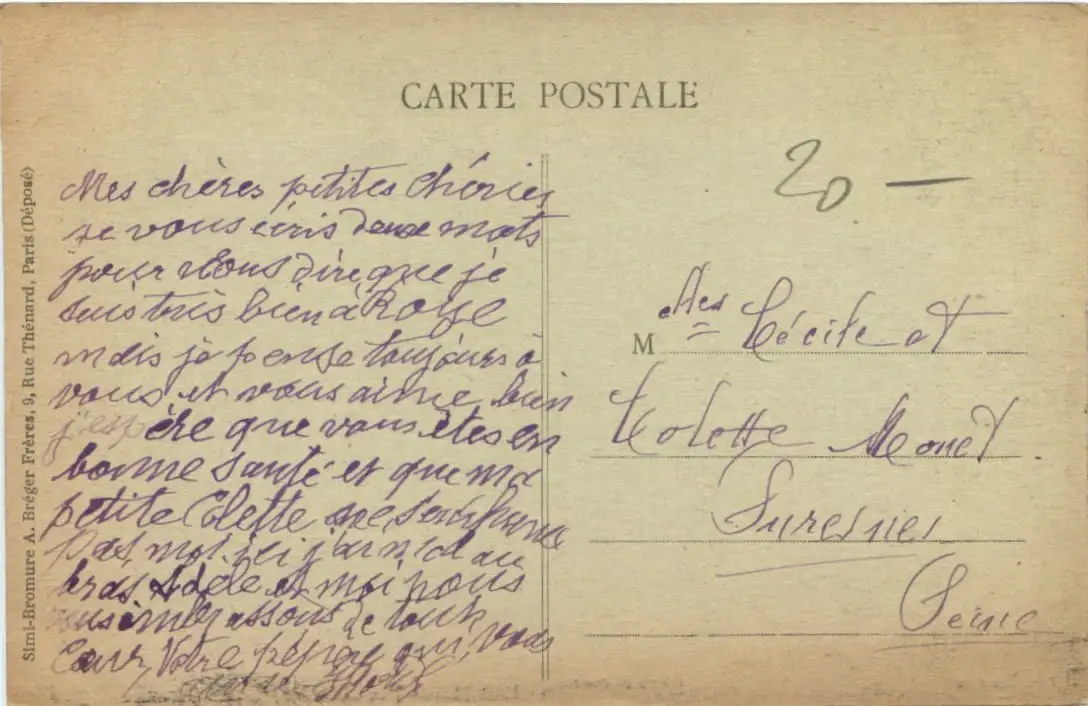 CARTE POSTALE
20 —
Simi-Bromure A. Bréger Frères, 9, Rue Thénard, Paris (Déposé)
Mes chères petites Chéries
je vous écris deux mots
pour vous dire que je
suis très bien à Roye
mais je pense toujours à
vous et vous aime bien
j'espère que vous êtes en
bonne santé et que ma
petite Colette ne s'enrhume
pas moi ici j'ai mal au
bras Adèle et moi nous
vous embrassons de tout
Cœur, Votre pépère qui vous
M Mes Cécile et
Colette Monet
Suresnes
Seine